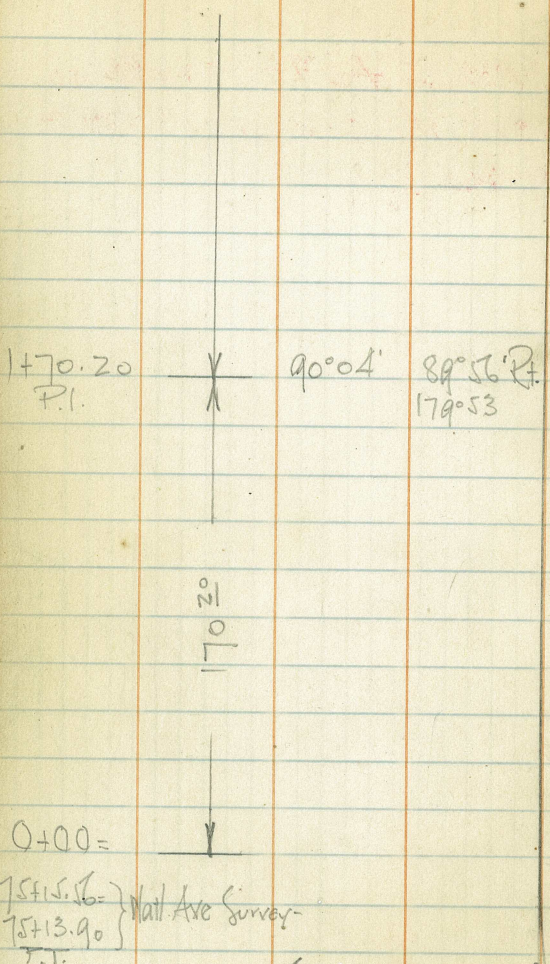 1+70.20 90°04' 89°56' Rt.
P.I. 179°53
170 20
0+00=
75+15.56=
75+13.90 } Natl Ave Survey-